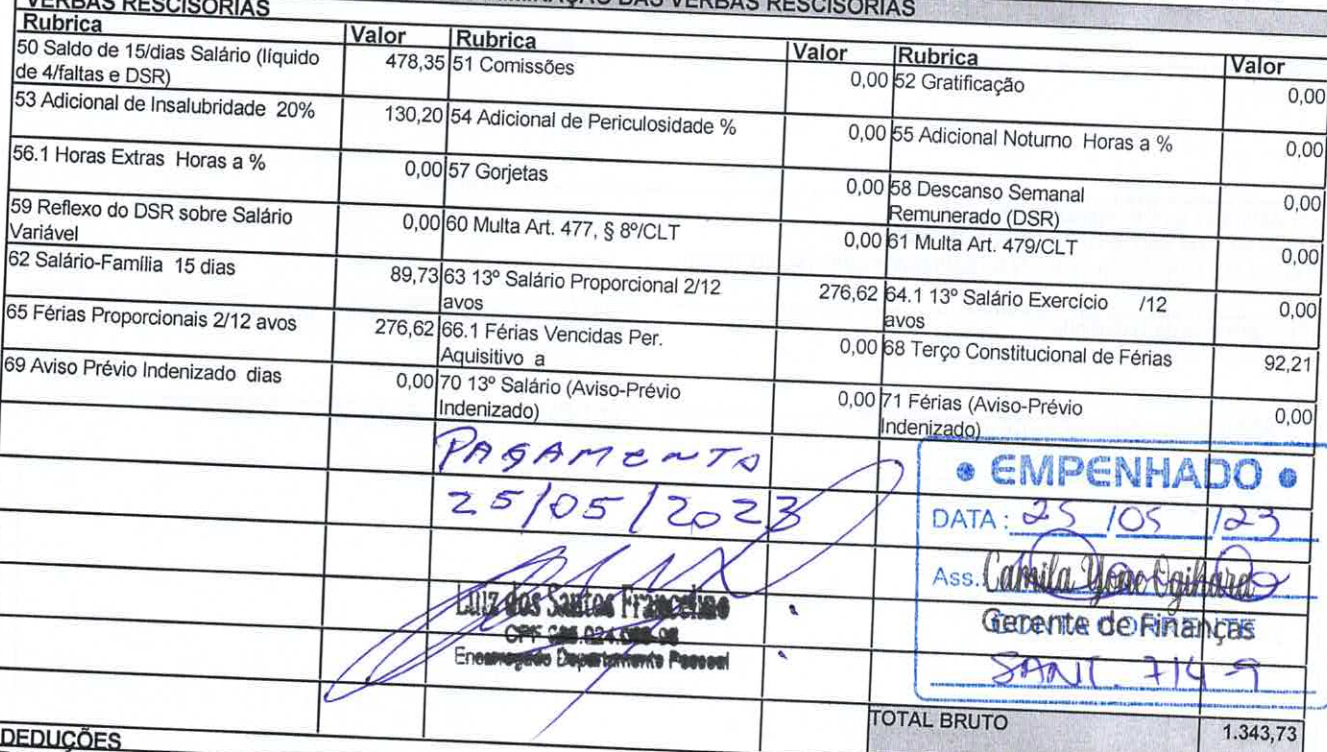 VERBAS RESCISÓRIAS DAS VERBAS RESCISÓRIAS
Rubrica Valor Rubrica Valor Rubrica Valor
50 Saldo de 15/dias Salário (líquido de 4/faltas e DSR) 478,35 51 Comissões 0,00 52 Gratificação 0,00
53 Adicional de Insalubridade 20% 130,20 54 Adicional de Periculosidade % 0,00 55 Adicional Noturno Horas a % 0,00
56.1 Horas Extras Horas a % 0,00 57 Gorjetas 0,00 58 Descanso Semanal Remunerado (DSR) 0,00
59 Reflexo do DSR sobre Salário Variável 0,00 60 Multa Art. 477, § 8º/CLT 0,00 61 Multa Art. 479/CLT 0,00
62 Salário-Família 15 dias 89,73 63 13º Salário Proporcional 2/12 avos 276,62 64.1 13º Salário Exercício /12 avos 0,00
65 Férias Proporcionais 2/12 avos 276,62 66.1 Férias Vencidas Per. Aquisitivo a 0,00 68 Terço Constitucional de Férias 92,21
69 Aviso Prévio Indenizado dias 0,00 70 13º Salário (Aviso-Prévio Indenizado) 0,00 71 Férias (Aviso-Prévio Indenizado) 0,00
PAGAMENTO
25/05/2023
• EMPENHADO •
DATA: 25 /05 /23
Ass. Camila Ogihara
Gerente de Finanças
SANT. 714-9
Luiz dos Santos Francelino
CPF
Encarregado Departamento Pessoal
TOTAL BRUTO 1.343,73
DEDUÇÕES